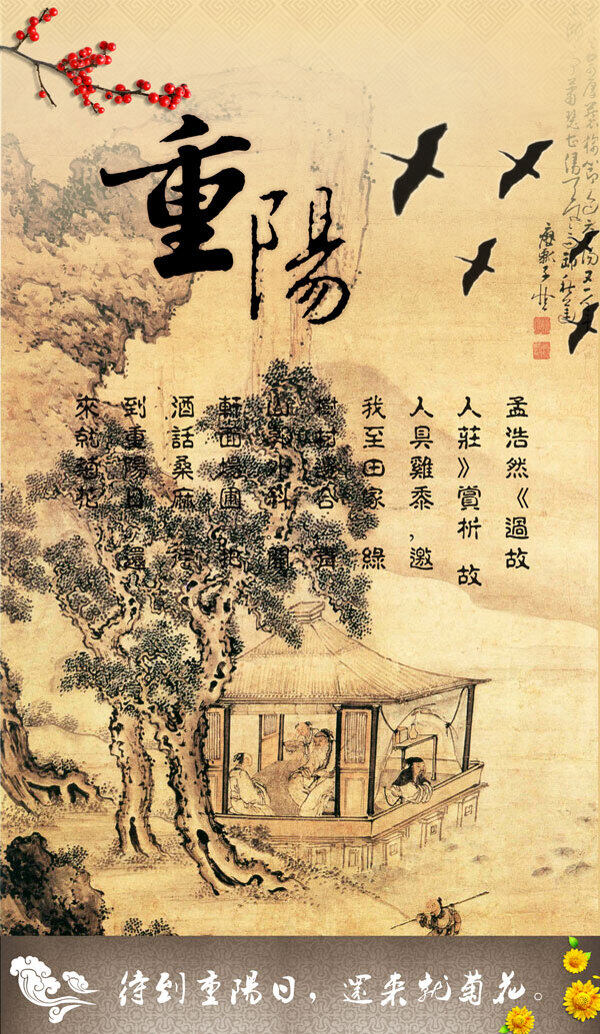 重陽
孟浩然《過故
人莊》賞析故
人具雞黍,邀
我至田家 綠
樹村邊合 青
山郭外斜 開
軒面場圃 把
酒話桑麻 待
到重陽日 還
來就菊花
待到重陽日，還来就菊花。